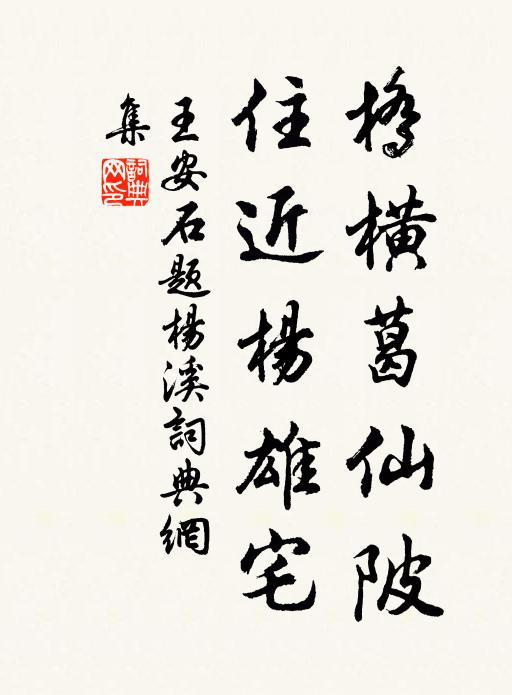 橋橫葛仙陂
住近楊雄宅
王安石題楊溪詞典網
集
詞典網印